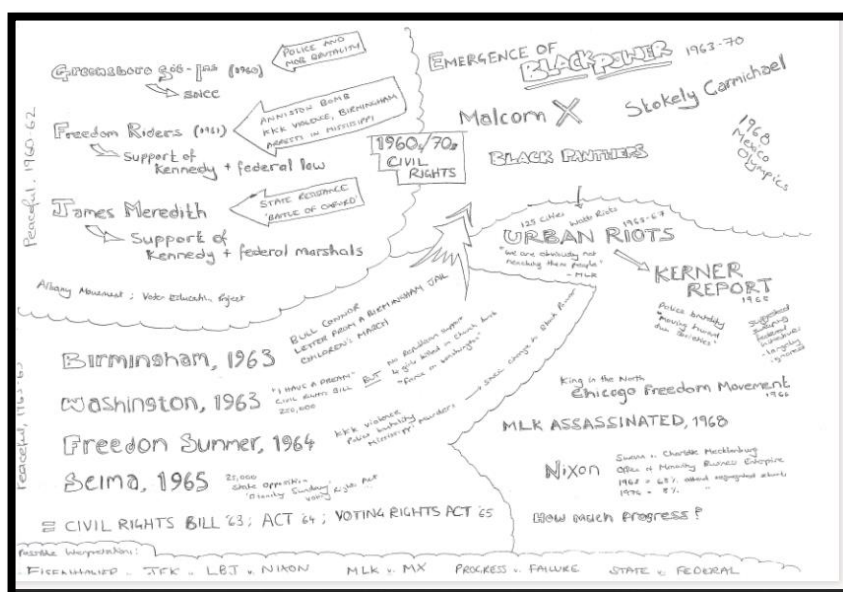 Greensboro Sit-Ins (1960)
POLICE AND
MOB BRUTALITY
SNCC
Freedom Riders (1961)
ANNISTON BOMB
KKK VIOLENCE, BIRMINGHAM
ARRESTS IN MISSISSIPPI
Support of
Kennedy + federal law
James Meredith
STATE RESISTANCE
'BATTLE OF OXFORD'
Support of
Kennedy + federal marshals
Peaceful, 1960-62
Albany Movement ; Voter Education Project
1960s/70s
CIVIL
RIGHTS
EMERGENCE OF
BLACK POWER 1963-70
Malcom X
Stokely Carmichael
BLACK PANTHERS
1968
Mexico
Olympics
125 Cities Watts Riots 1963-67
URBAN RIOTS
"We are obviously not
reaching these people"
- MLK
KERNER
REPORT
1968
Police brutality
"moving toward
two societies"
Suggested
sweeping
federal
initiatives
- largely
ignored
Peaceful, 1963-65
Birmingham, 1963
BULL CONNOR
LETTER FROM A BIRMINGHAM JAIL
CHILDREN'S MARCH
Washington, 1963
"I HAVE A DREAM"
CIVIL RIGHTS BILL
250,000
BUT
no Republican support
4 girls killed in Church bomb
"Farce on Washington"
Freedon Summer, 1964
KKK violence
Police brutality
Mississippi murders
SNCC change to Black Power
Selma, 1965
25,000
State opposition
'Bloody Sunday'
Voting Rights Act
= CIVIL RIGHTS BILL '63 ; ACT '64 ; VOTING RIGHTS ACT '65
King in the North
Chicago Freedom Movement
1966
MLK ASSASSINATED, 1968
Nixon
Swann v. Charlotte Mecklenburg
Office of Minority Business Enterprise
1968 = 68%
1974 = 8% "
How much Progress?
Possible Interpretations:
JFK v. LBJ v. NIXON MLK v. MX PROGRESS v. FAILURE STATE v. FEDERAL